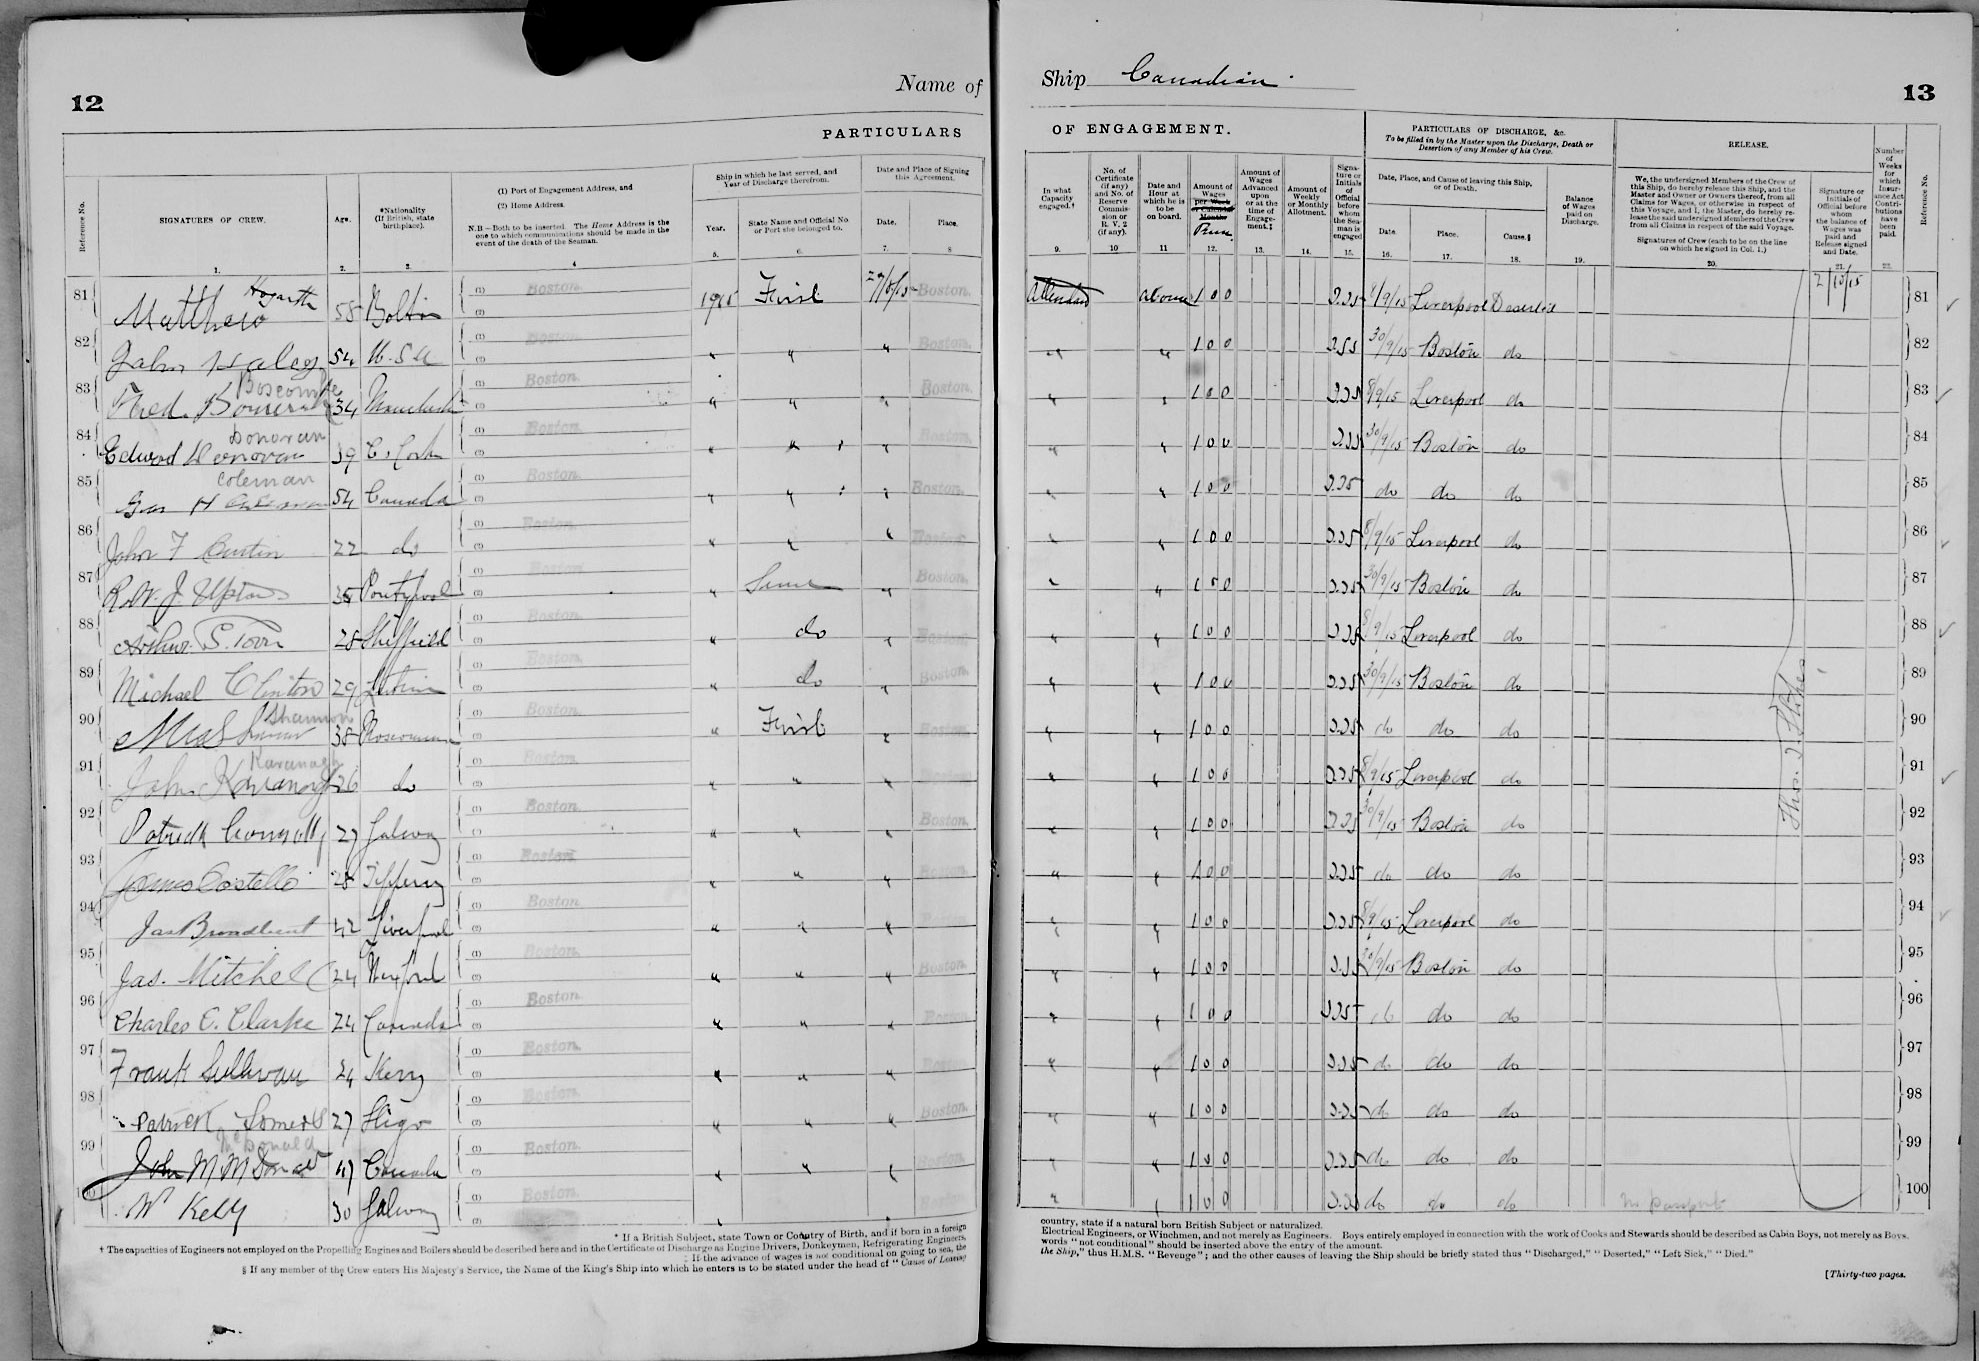 12
Name of
PARTICULARS
Reference No.
SIGNATURES OF CREW.
Age.
*Nationality
(If British, state
birthplace).
(1) Port of Engagement Address, and
(2) Home Address.
N.B.—Both to be inserted. The Home Address is the
one to which communications should be made in the
event of the death of the Seaman.
Ship in which he last served, and
Year of Discharge therefrom.
Year.
State Name and Official No.
or Port she belonged to.
Date and Place of Signing
this Agreement.
Date.
Place.
1. 2. 3. 4 5. 6. 7. 8
81 Matthew Hogarth 58 Bolton Boston. 1915 First Boston.
82 John Haley 54 U.S.A Boston. " " " Boston.
83 Fred Boscombe 34 Boston. " " " Boston.
84 Edward Donovan Donovan 39 C. Cork Boston. " " " Boston.
85 Coleman 54 Canada Boston. " " " Boston.
86 John F Curtin 22 do Boston. " " " Boston.
87 J. Upton Pontypool Boston. " " Boston.
88 Arthur S. 28 Sheffield Boston. " do " Boston.
89 Michael Clinton 29 Boston. " do " Boston.
90 Shannon 38 Boston. " First " Boston.
91 John Kavanagh Kavanagh 26 do Boston. " " " Boston.
92 Patrick Connolly 27 Galway Boston. " " " Boston.
93 James Costello 28 Boston. " " " Boston.
94 Jas Broadbent 42 Liverpool Boston " " " Boston.
95 Jas. Mitchell 24 Wexford Boston. " " " Boston.
96 Charles C. Clarke 24 Canada Boston. " " " Boston.
97 Frank Sullivan 24 Kerry Boston. " " " Boston.
98 Patrick Somers 27 Sligo Boston. " " " Boston.
99 John M McDonald McDonald 47 Canada Boston. " " " Boston.
100 Wm Kelly 30 Galway Boston. " " Boston.
* If a British Subject, state Town or Country of Birth, and if born in a foreign
† The capacities of Engineers not employed on the Propelling Engines and Boilers should be described here and in the Certificate of Discharge as Engine Drivers, Donkeymen, Refrigerating Engineers,
‡ If the advance of wages is not conditional on going to sea, the
§ If any member of the Crew enters His Majesty's Service, the Name of the King's Ship into which he enters is to be stated under the head of "Cause of Leaving
Ship Canadian
13
OF ENGAGEMENT.
PARTICULARS OF DISCHARGE, &c.
To be filled in by the Master upon the Discharge, Death or
Desertion of any Member of his Crew.
RELEASE.
In what
Capacity
engaged.†
No. of
Certificate
(if any)
and No. of
Reserve
Commis-
sion or
R. V. 2
(if any).
Date and
Hour at
which he is
to be
on board.
Amount of
Wages
per Week
or Calendar
Month
Run.
Amount of
Wages
Advanced
upon
or at the
time of
Engage-
ment.‡
Amount of
Weekly
or Monthly
Allotment.
Signa-
ture or
Initials
of
Official
before
whom
the Sea-
man is
engaged
Date, Place, and Cause of leaving this Ship,
or of Death.
Date.
Place.
Cause.§
Balance
of Wages
paid on
Discharge.
We, the undersigned Members of the Crew of
this Ship, do hereby release this Ship, and the
Master and Owner or Owners thereof, from all
Claims for Wages, or otherwise in respect of
this Voyage, and I, the Master, do hereby re-
lease the said undersigned Members of the Crew
from all Claims in respect of the said Voyage.
Signatures of Crew (each to be on the line
on which he signed in Col. 1.)
Signature or
Initials of
Official before
whom
the balance of
Wages was
paid and
Release signed
and Date.
Number
of
Weeks
for
which
Insur-
ance Act
Contri-
butions
have
been
paid.
Reference No.
9. 10 11 12. 13. 14. 15. 16. 17. 18. 19. 20. 21. 22.
Attendant 1 0 0 8/9/15 Liverpool Deserted 2/10/15 81
" " 1 0 0 30/9/15 Boston do 82
" " 1 0 0 8/9/15 Liverpool do 83
" " 1 0 0 30/9/15 Boston do 84
" " 1 0 0 do do do 85
" " 1 0 0 8/9/15 Liverpool do 86
" " 1 0 0 30/9/15 Boston do 87
" " 1 0 0 8/9/15 Liverpool do 88
" " 1 0 0 30/9/15 Boston do 89
" " 1 0 0 do do do 90
" " 1 0 0 8/9/15 Liverpool do 91
" " 1 0 0 30/9/15 Boston do 92
" " 1 0 0 do do do 93
" " 1 0 0 8/9/15 Liverpool do 94
" " 1 0 0 30/9/15 Boston do 95
" " 1 0 0 do do do 96
" " 1 0 0 do do do 97
" " 1 0 0 do do do 98
" " 1 0 0 do do do 99
" " 1 0 0 do do do 100
country, state if a natural born British Subject or naturalized.
Electrical Engineers, or Winchmen, and not merely as Engineers. Boys entirely employed in connection with the work of Cooks and Stewards should be described as Cabin Boys, not merely as Boys.
words "not conditional" should be inserted above the entry of the amount.
the Ship," thus H.M.S. "Revenge"; and the other causes of leaving the Ship should be briefly stated thus "Discharged," "Deserted," "Left Sick," "Died."
[Thirty-two pages.